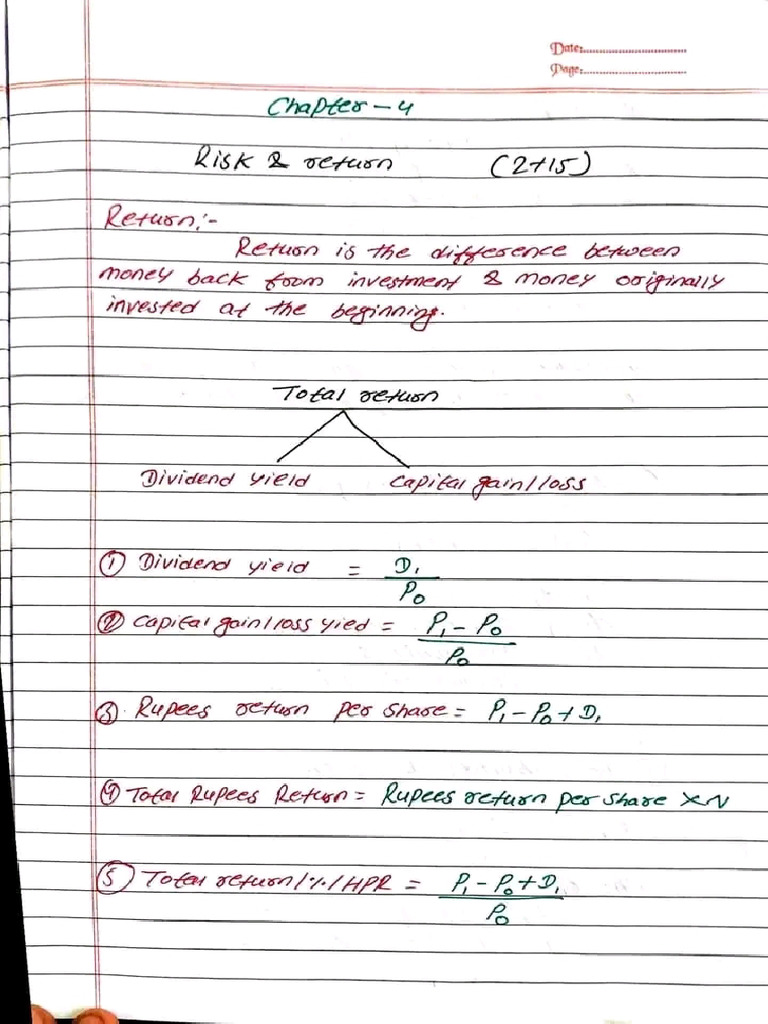 Date:
Page:
Chapter - 4
Risk & return (2+15)
Return:-
Return is the difference between
money back from investment & money originally
invested at the beginning.
Total return
Dividend yield Capital gain/loss
① Dividend yield = D₁/P₀
② Capital gain/loss yied = P₁ - P₀/P₀
③ Rupees return per share = P₁ - P₀ + D₁
④ Total Rupees Return = Rupees return per share × N
⑤ Total return/%/HPR = P₁ - P₀ + D₁/P₀